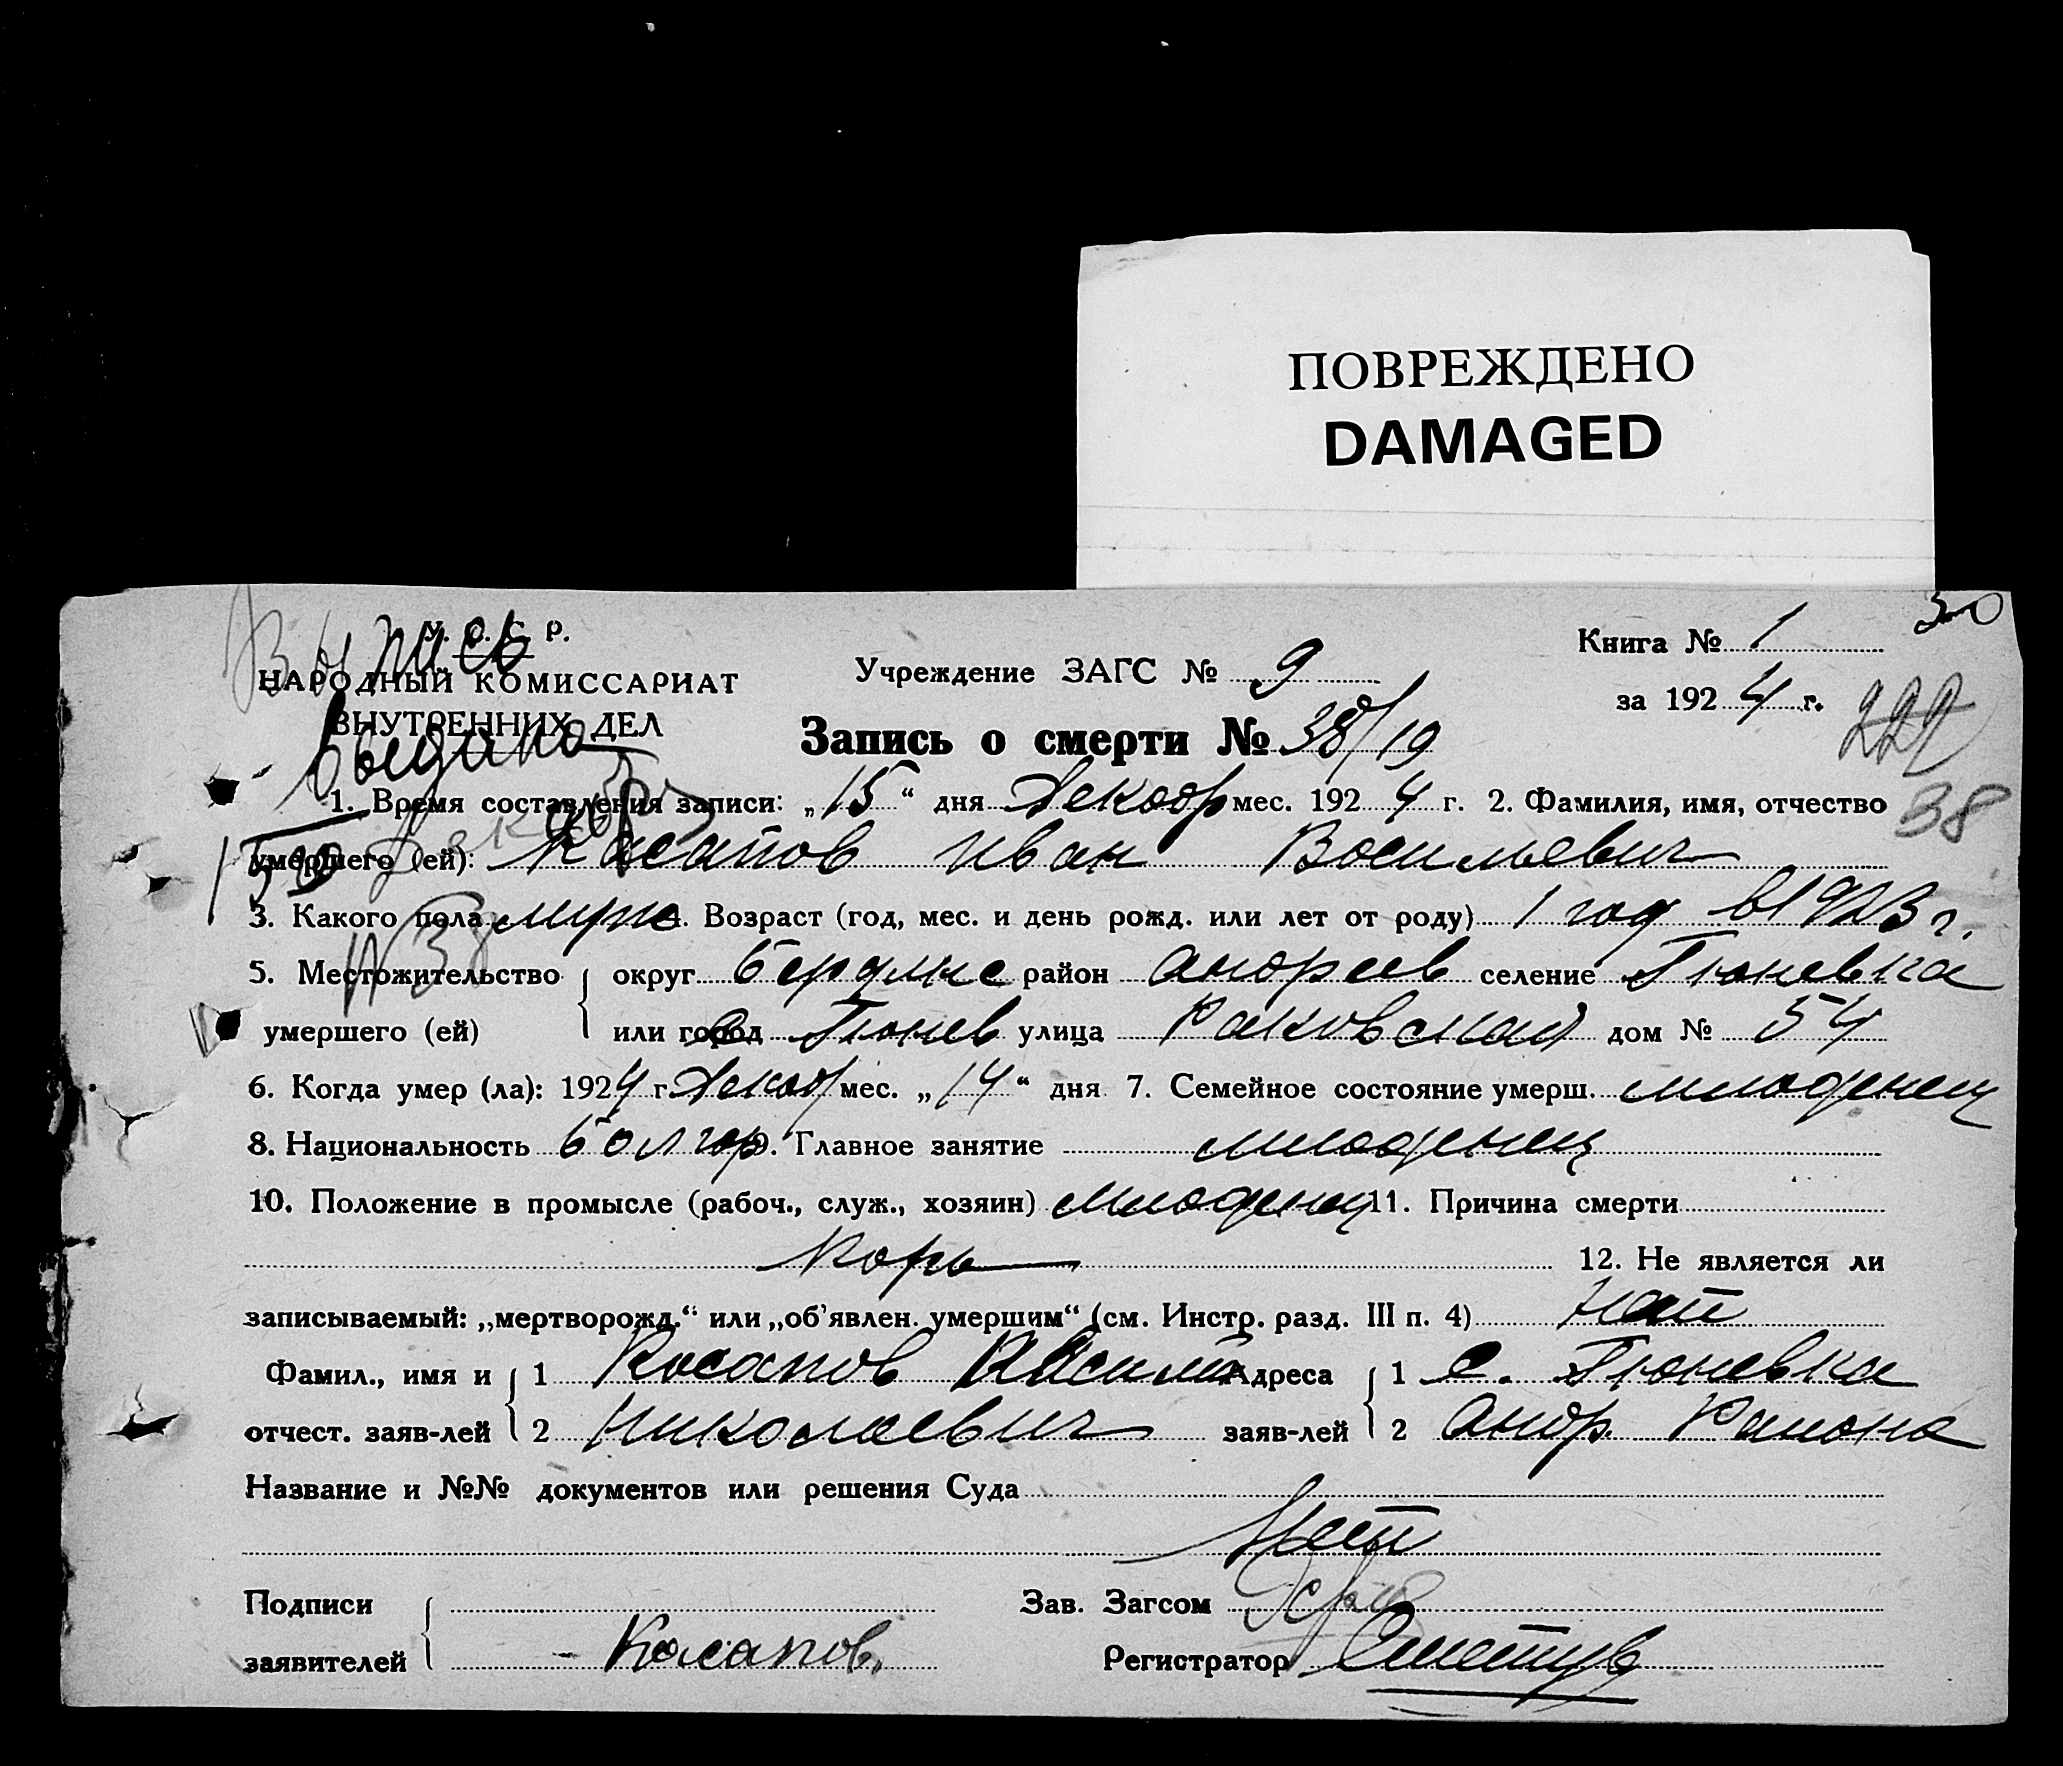 ПОВРЕЖДЕНО
DAMAGED
30
Выпись
У. С. С. Р.
НАРОДНЫЙ КОМИССАРИАТ
ВНУТРЕННИХ ДЕЛ
выдана
Учреждение ЗАГС № 9
Книга № 1
за 1924 г.
222
Запись о смерти № 38/19
38
1. Время составления записи: „15“ дня Декабр мес. 1924 г. 2. Фамилия, имя, отчество
умершего (ей): Касапов Иван Васильевич
3. Какого пола муж 4. Возраст (год, мес. и день рожд. или лет от роду) 1 год в 1923 г.
№ 38
5. Местожительство округ Бердянс район Андреев селение Гюневка
умершего (ей) или город с Гюнев улица Раковская дом № 54
6. Когда умер (ла): 1924 г. Декабр мес. „14“ дня 7. Семейное состояние умерш. младенец
8. Национальность болгар 9. Главное занятие младенец
10. Положение в промысле (рабоч., служ., хозяин) младенец 11. Причина смерти
Корь 12. Не является ли
записываемый: „мертворожд.“ или „об'явлен. умершим“ (см. Инстр. разд. III п. 4) нет
Фамил., имя и 1 Касапов Василий Адреса 1 с. Гюневка
отчест. заяв-лей 2 Николаевич заяв-лей 2 Андр. Района
Название и №№ документов или решения Суда
Нет
Подписи Зав. Загсом
заявителей Касапов Регистратор